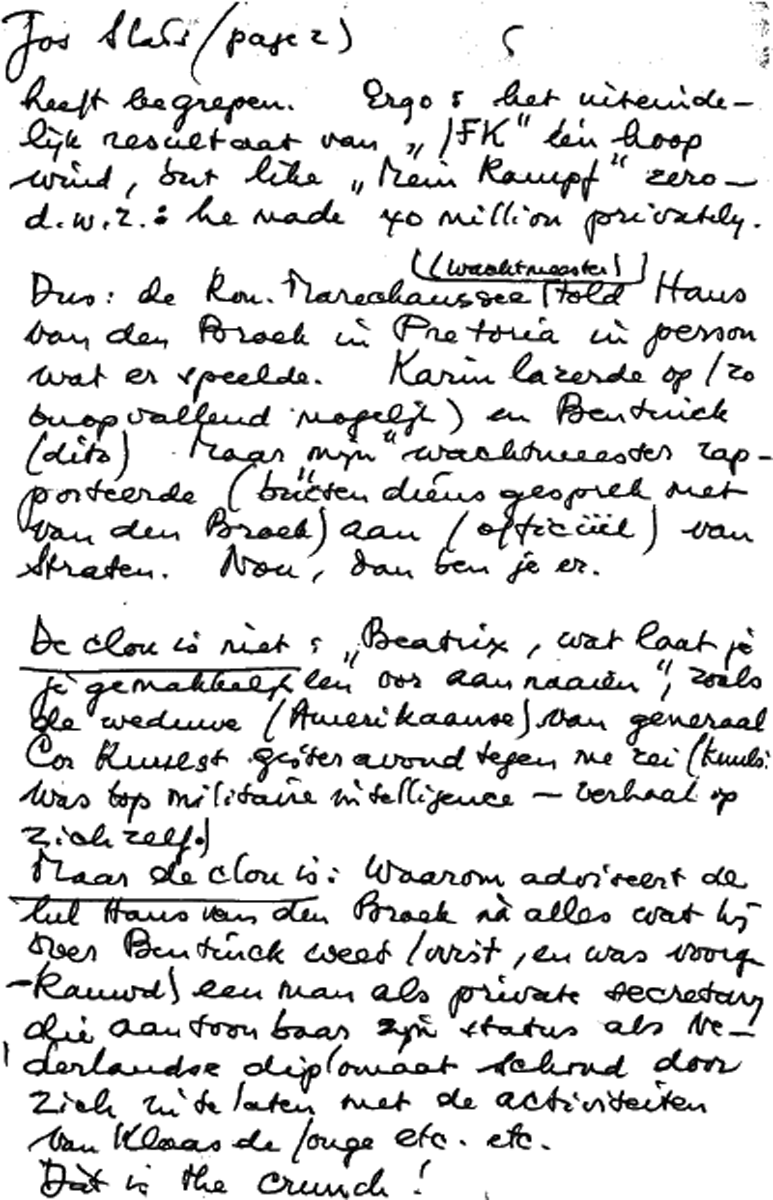 Jos Slats (page 2) 5
heeft begrepen. Ergo: het uiteinde-
lijk resultaat van „JFK" één hoop
wind, but like „Mein Kampf" zero -
d.w.z.: he made 40 million privately.
((wachtmeester))
Dus: de Kon. Marechaussee told Hans
van den Broek in Pretoria in person
wat er speelde. Karin lazerde op (zo
onopvallend mogelijk) en Bentinck
(dito) Maar mijn "wachtmeester rap-
porteerde (buiten diens gesprek met
van den Broek) aan (officiëel) van
Straten. Nou, dan ben je er.
De clou is niet: „Beatrix, wat laat je
je gemakkelijk een oor aannaaien", zoals
de weduwe (Amerikaanse) van generaal
Cor gisteravond tegen me zei
was top militaire intelligence - verhaal op
zich zelf.)
Maar de clou is: Waarom adviseert de
lul Hans van den Broek nà alles wat hij
over Bentinck weet (wist, en was voorge
-kauwd) een man als private secretary
die aantoonbaar zijn status als Ne-
derlandse diplomaat schond door
zich in te laten met de activiteiten
van Klaas de Jonge etc. etc.
Dàt is the crunch!